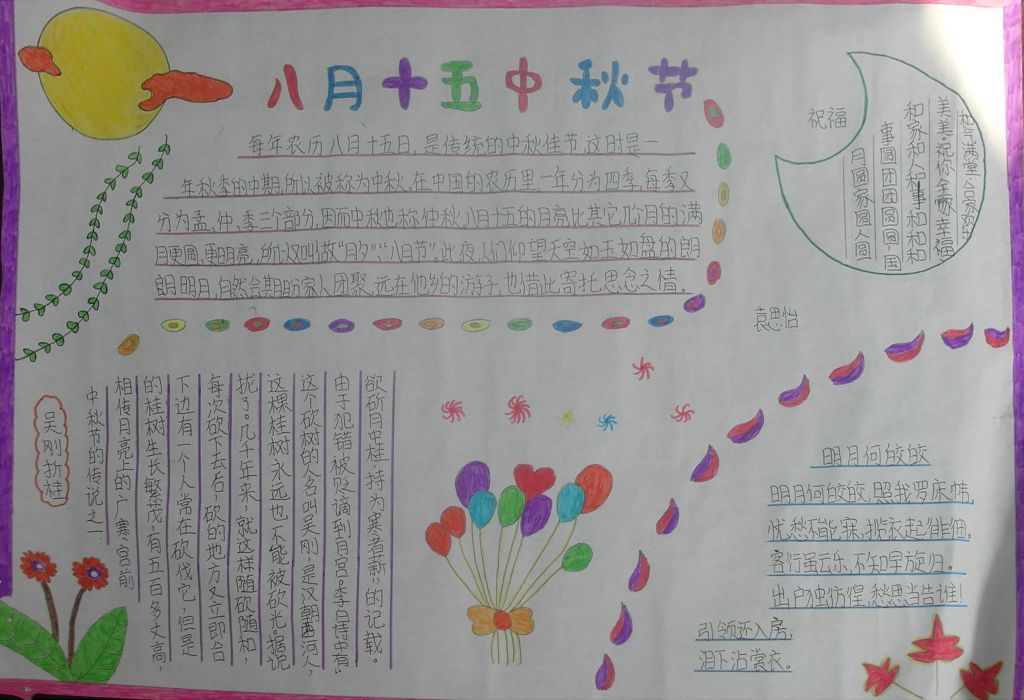 八月十五中秋节
每年农历八月十五日,是传统的中秋佳节,这时是一
年秋季的中期,所以被称为中秋,在中国的农历里,一年分为四季,每季又
分为孟、仲、季三个部分,因而中秋也称仲秋,八月十五的月亮比其它几个月的满
月更圆,更明亮,所以又叫做“月夕”“八月节”,此夜,人们仰望天空如玉如盘的朗
朗明月,自然会期盼家人团聚,远在他乡的游子,也借此寄托思念之情。
祝福
和气满堂合家欢
美美祝你全家幸福
和家和人和事和和和
事圆团团圆圆,国
月圆家圆人圆
袁思怡
吴刚折桂
中秋节的传说之一:
相传月亮上的广寒宫前
的桂树生长繁茂,有五百多丈高,
下边有一个人常在砍伐它,但是
每次砍下去后,砍的地方又立即合
拢了。几千年来,就这样随砍随和,
这棵桂树永远也不能被砍光。据记
这个砍树的人名叫吴刚,是汉朝西河人,
由于犯错被贬谪到月宫。李白诗中有“
欲斫月中桂,持为寒者薪”的记载。
明月何皎皎
明月何皎皎,照我罗床帏,
忧愁不能寐,揽衣起徘徊,
客行虽云乐,不知早旋归。
出户独彷徨,愁思当告谁!
引领还入房,
泪下沾裳衣。